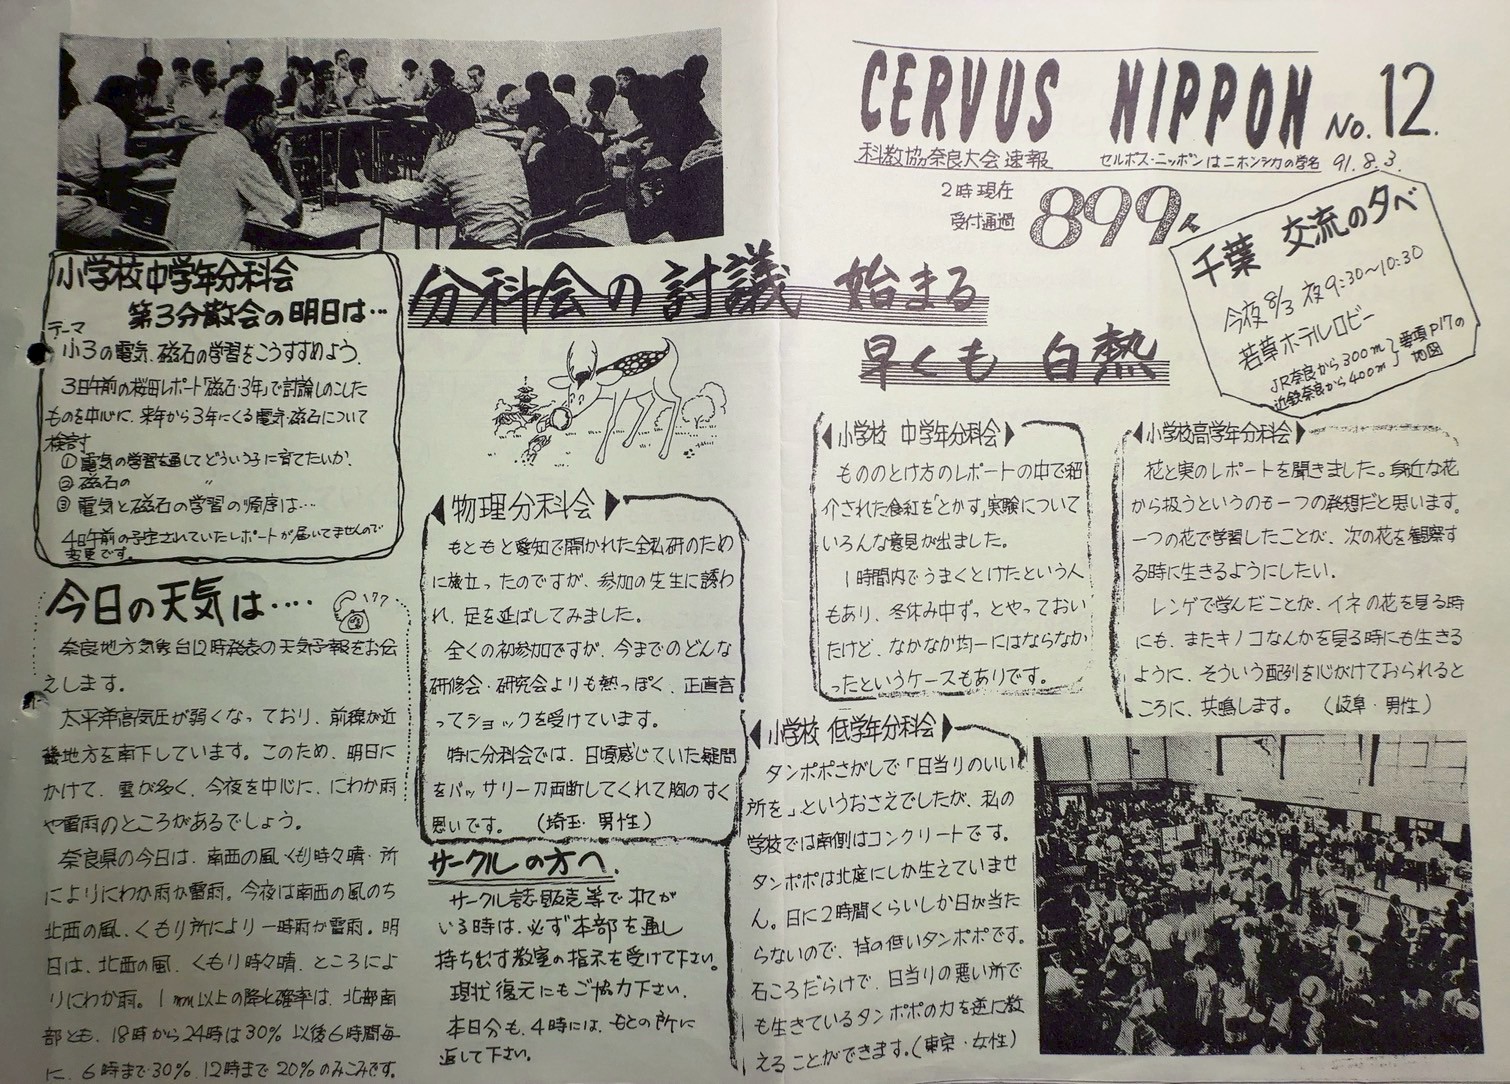 CERVUS NIPPON No.12.
科教協奈良大会速報
セルボス・ニッポンはニホンジカの学名 91.8.3.
2時現在
受付通過
899名
千葉 交流の夕べ
今夜8/3 夜9:30〜10:30
若草ホテルロビー
JR奈良から300m
近鉄奈良から400m
要項P17の
地図
分科会の討議 始まる
早くも 白熱
小学校 中学年分科会
もののとけ方のレポートの中で紹
介された食紅を「とかす」実験について
いろんな意見が出ました。
1時間内でうまくとけたという人
もあり、冬休み中ずっとやっておい
たけど、なかなか均一にはならなか
ったというケースもありです。
小学校高学年分科会
花と実のレポートを聞きました。身近な花
から扱うというのも一つの発想だと思います。
一つの花で学習したことが、次の花を観察す
る時に生きるようにしたい.
レンゲで学んだことが、イネの花を見る時
にも、またキノコなんかを見る時にも生きる
ように、そういう配列を心がけておられると
ころに、共鳴します。 (岐阜・男性)
小学校 低学年分科会
タンポポさがしで「日当りのいい
所を」というおさえでしたが、私の
学校では南側はコンクリートです。
タンポポは北庭にしか生えていませ
ん。日に2時間くらいしか日が当た
らないので、背の低いタンポポです。
石ころだらけで、日当りの悪い所で
も生きているタンポポの力を逆に教
えることができます。(東京・女性)
物理分科会
もともと愛知で開かれた全私研のため
に旅立ったのですが、参加の先生に誘わ
れ、足を延ばしてみました。
全くの初参加ですが、今までのどんな
研修会・研究会よりも熱っぽく、正直言
ってショックを受けています。
特に分科会では、日頃感じていた疑問
をバッサリ一刀両断してくれて胸のすく
思いです。 (埼玉・男性)
サークルの方へ.
サークル誌販売等で
いる時は、必ず本部を通し
持ち込む教室の指示を受けて下さい。
現状復元にもご協力下さい.
本日分も、4時には、もとの所に
返して下さい。
小学校中学年分科会
第3分散会の明日は…
テーマ
小3の電気、磁石の学習をこうすすめよう.
3日午前の桜田レポート「磁石・3年」で討論しのこした
ものを中心に、来年から3年にくる電気・磁石について
検討す
① 電気の学習を通してどういう子に育てたいか.
② 磁石の 〃
③ 電気と磁石の学習の順序は…
4日午前の予定されていたレポートが届いてませんので
変更です。
今日の天気は‥‥
177
奈良地方気象台12時発表の天気予報をお伝
えします。
太平洋高気圧が弱くなっており、前線が近
畿地方を南下しています。このため、明日に
かけて、雲が多く、今夜を中心に、にわか雨
や雷雨のところがあるでしょう。
奈良県の今日は、南西の風 くもり時々晴・所
によりにわか雨か雷雨。今夜は南西の風のち
北西の風、くもり所により一時雨か雷雨。明
日は、北西の風、くもり時々晴、ところによ
りにわか雨。1mm以上の降水確率は、北部南
部とも、18時から24時は30% 以後6時間毎
に、6時まで30%、12時まで20%のみこみです。